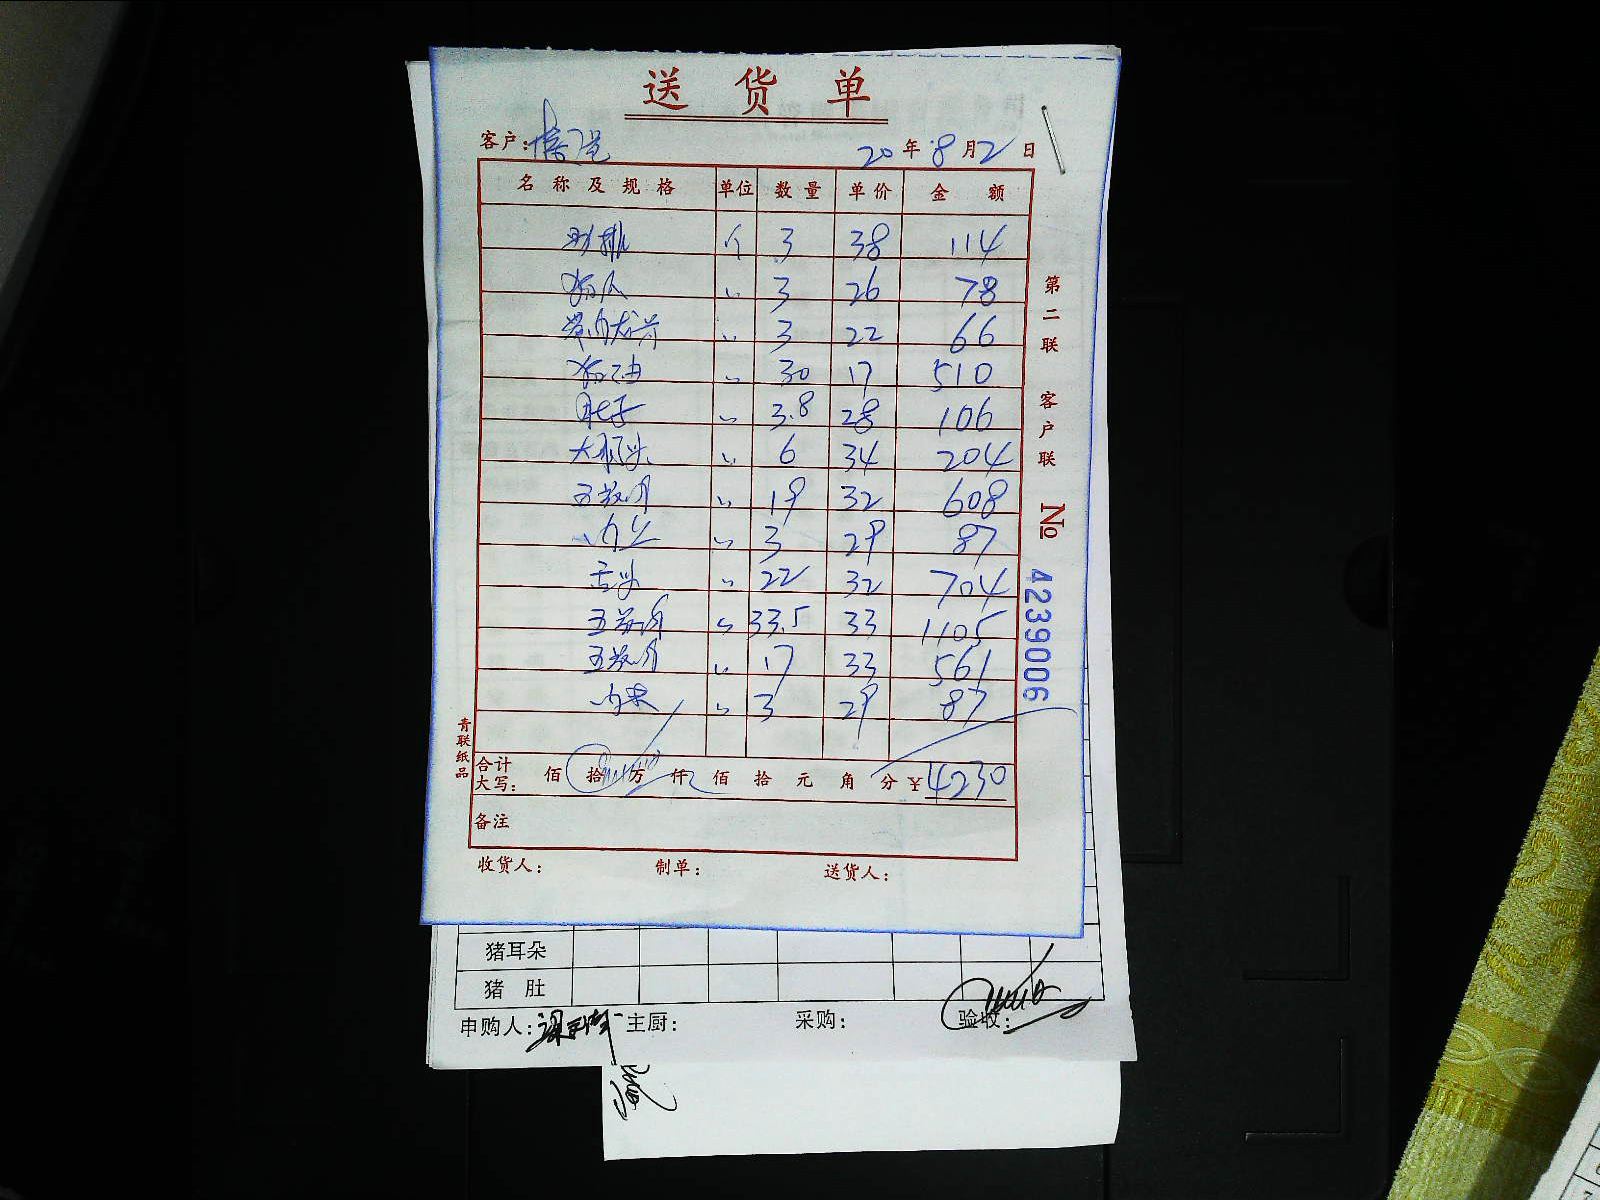 送货单
客户: 20年8月2日
名称及规格 单位 数量 单价 金额
排 个 3 38 114
3 26 78
3 22 66
猪油 30 17 510
肚子 3.8 28 106
大 6 34 204
五花肉 19 32 608
肉 3 29 87
舌头 22 32 704
五花肉 33.5 33 1105
五花肉 17 33 561
肉末 3 29 87
合计大写: 佰 拾 万 仟 佰 拾 元 角 分 ¥4230
备注
收货人: 制单: 送货人:
第二联 客户联
No 4239006
青联纸品
猪耳朵
猪肚
申购人: 主厨: 采购: 验收: